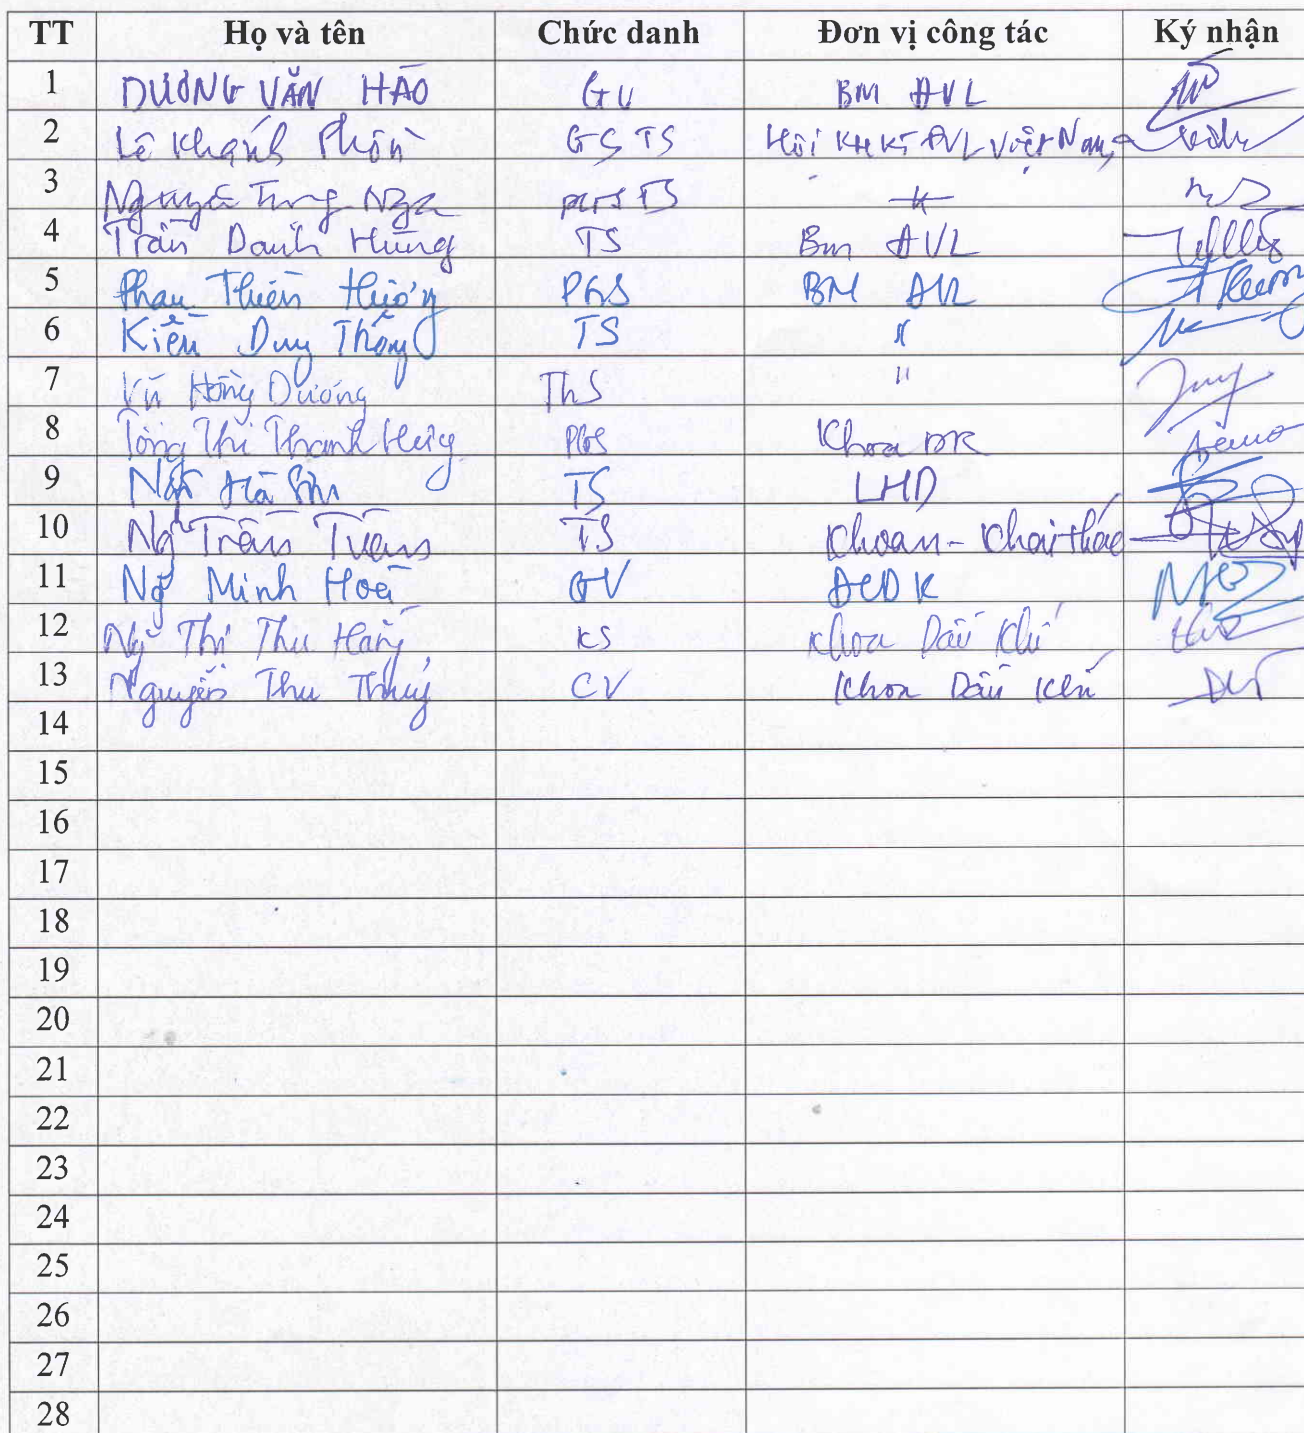 TT Họ và tên Chức danh Đơn vị công tác Ký nhận
1 DƯƠNG VĂN HÀO GV BM ĐVL
2 Lê Khánh Phồn GS TS Hội KHKT ĐVL Việt Nam
3 Nguyễn Trọng Nga PGS TS
4 Trần Danh Hùng TS Bm ĐVL
5 Phan Thiên Hương PGS BM ĐVL
6 Kiều Duy Thông TS "
7 Vũ Hồng Dương ThS "
8 Tống Thị Thanh Hương PGS Khoa DK
9 TS LHD
10 Ng Trần Tuân TS Khoan - Khai thác
11 Ng Minh Hoà GV ĐCDK
12 Ng Thị Thu Hằng KS Khoa Dầu Khí
13 Nguyễn Thu Thuỷ CV Khoa Dầu Khí
14
15
16
17
18
19
20
21
22
23
24
25
26
27
28